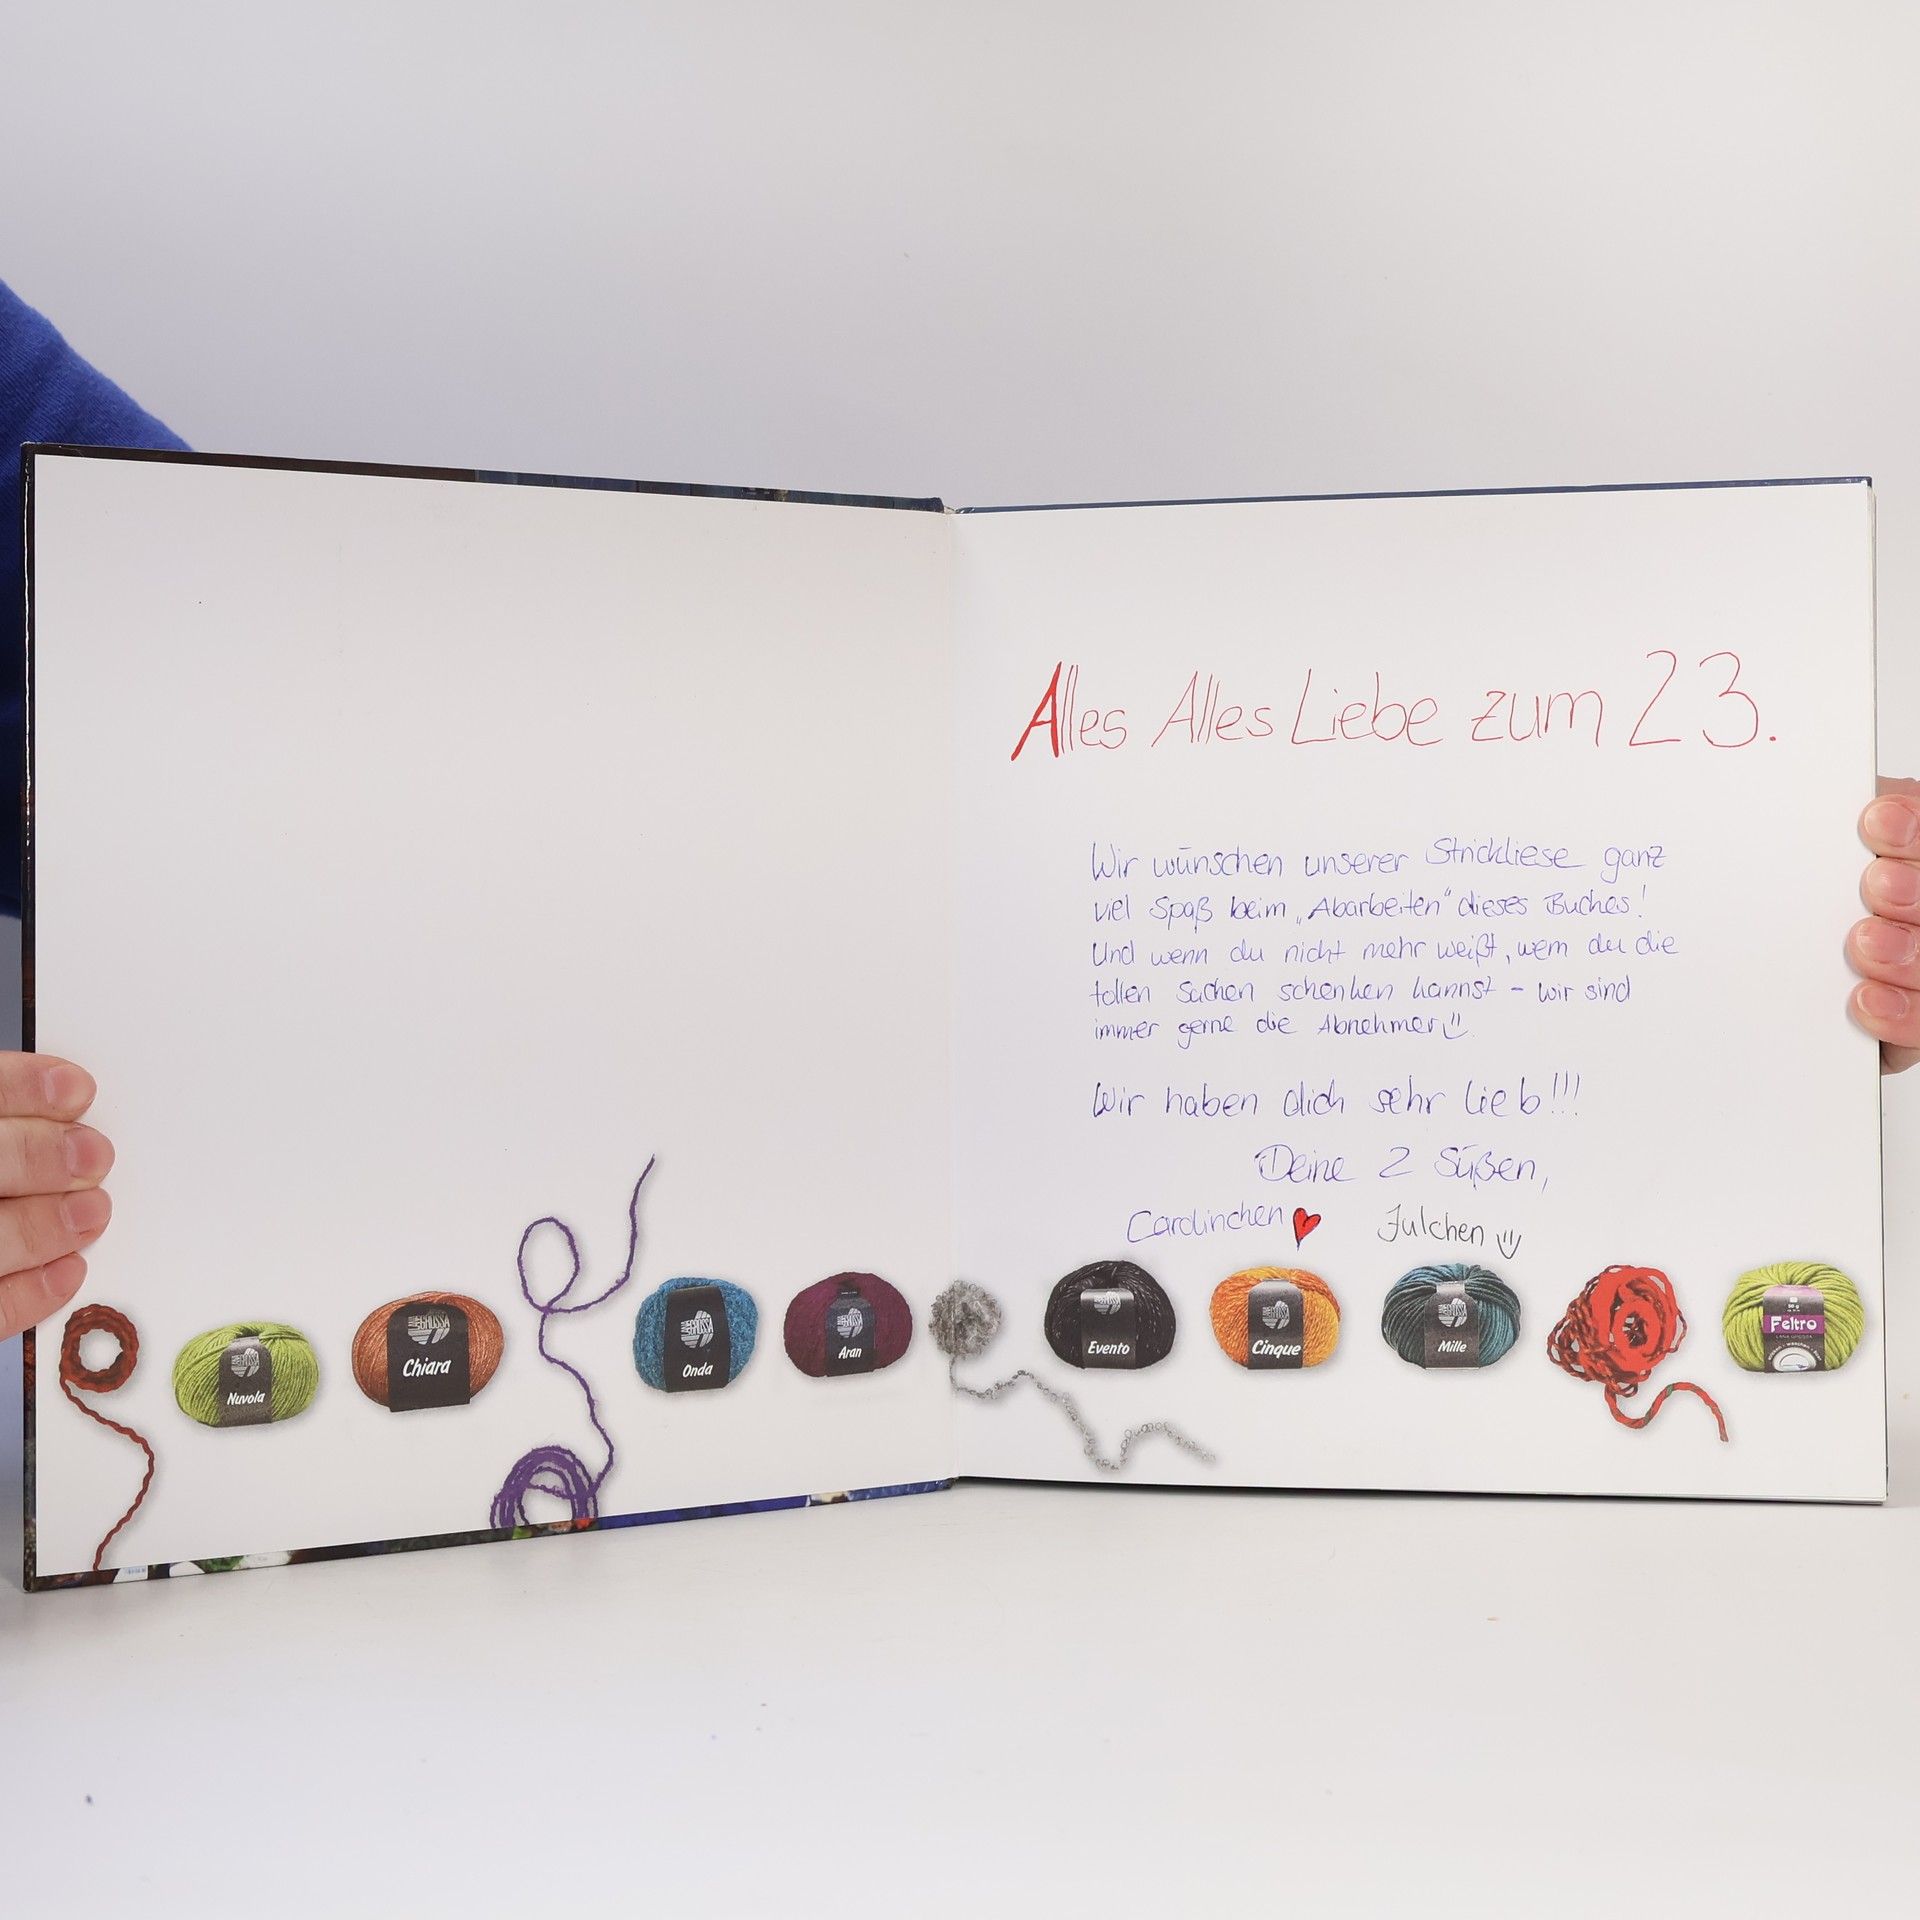 Alles Alles Liebe zum 23.
Wir wünschen unserer Strickliese ganz
viel Spaß beim „Abarbeiten“ dieses Buches!
Und wenn du nicht mehr weißt, wem du die
tollen Sachen schenken kannst - wir sind
immer gerne die Abnehmer
Wir haben dich sehr lieb!!!
Deine 2 Süßen,
Carolinchen Julchen
Nuvola
LANA GROSSA
Chiara
LANA GROSSA
Onda
Aran
Evento
Cinque
Mille
50 g
Feltro
LANA GROSSA